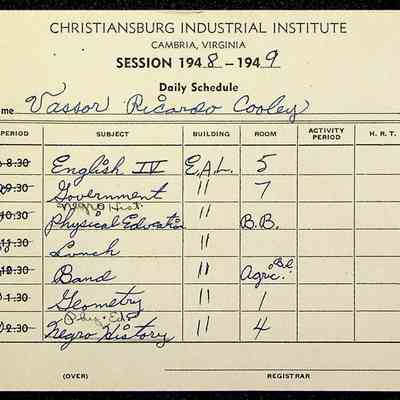 CHRISTIANSBURG INDUSTRIAL INSTITUTE
CAMBRIA, VIRGINIA
SESSION 1948-1949
Daily Schedule
me Vassor Ricardo Cooley
PERIOD SUBJECT BUILDING ROOM ACTIVITY PERIOD H. R. T.
8.30 English IV E.A.L. 5
9.30 Government " 7
Negro Hist.
10.30 Physical Education " B.B.
11.30 Lunch "
12.30 Band " Agric. Bl.
1.30 Geometry " 1
Phy. Ed.
2.30 Negro History " 4
(OVER) REGISTRAR